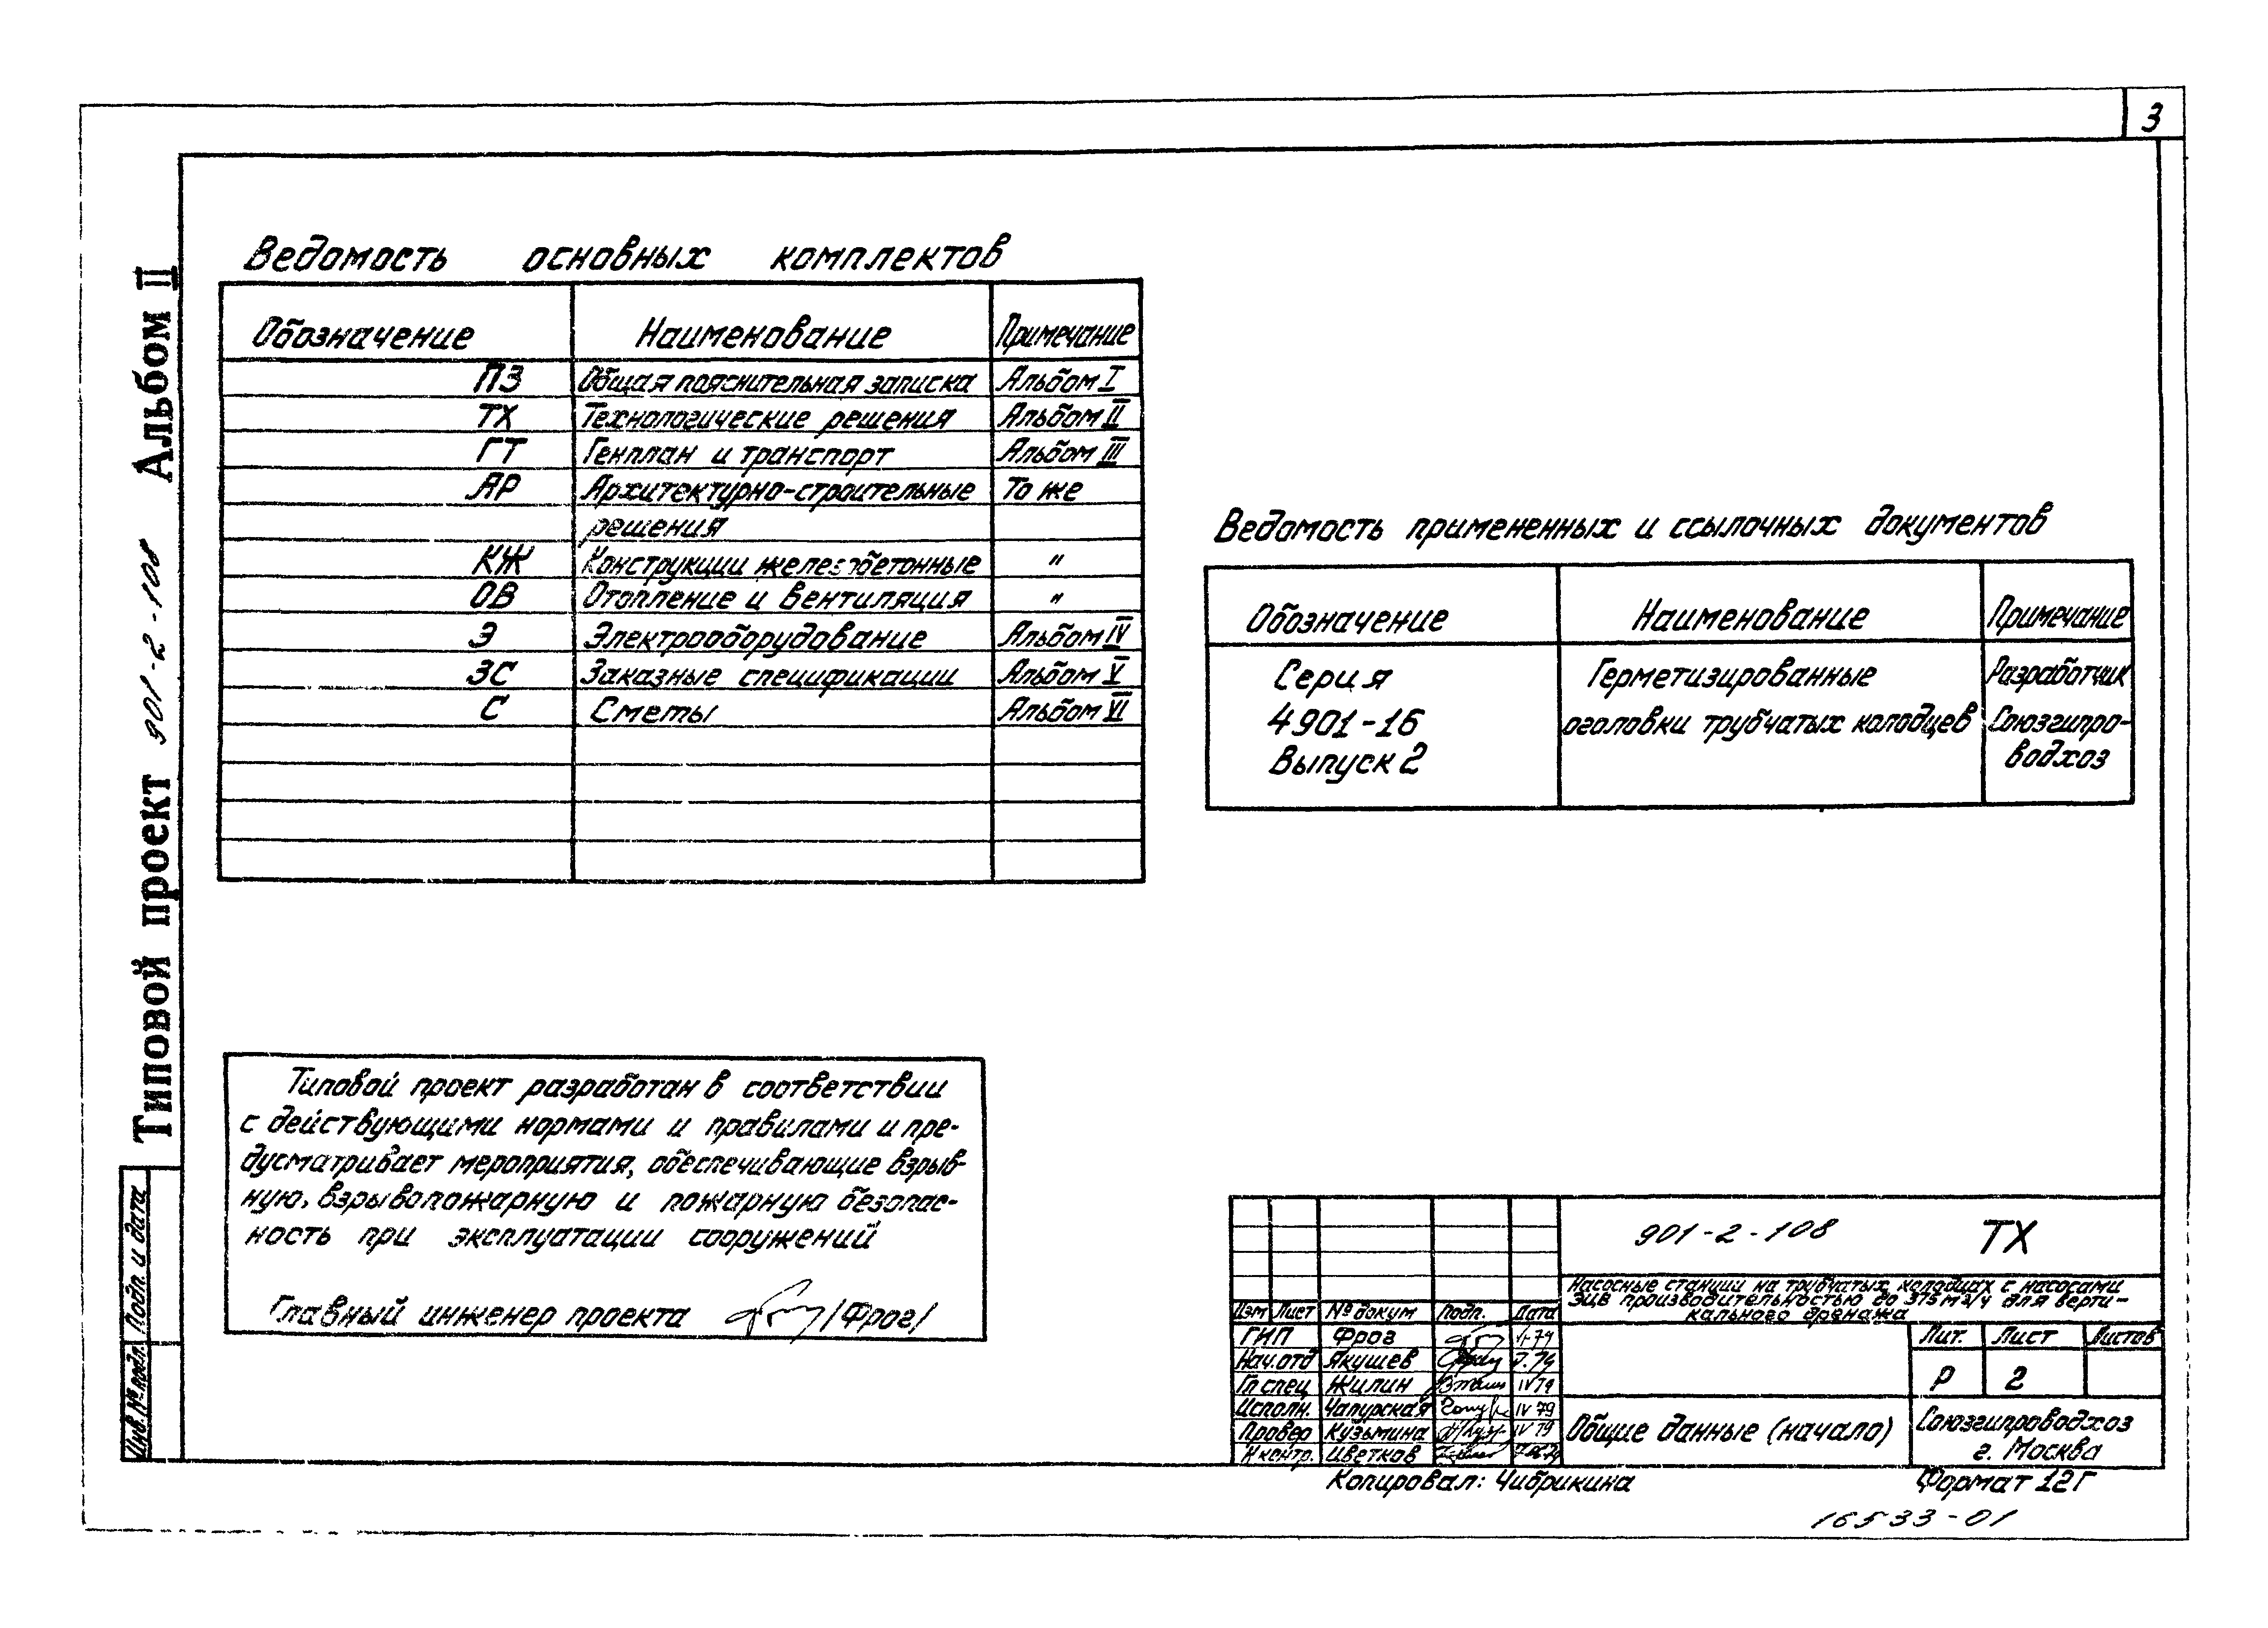 3
Типовой проект 901-2-108 Альбом II
Ведомость основных комплектов
Обозначение Наименование Примечание
ПЗ Общая пояснительная записка Альбом I
ТХ Технологические решения Альбом II
ГТ Генплан и транспорт Альбом III
АР Архитектурно-строительные То же
решения
КЖ Конструкции железобетонные "
ОВ Отопление и вентиляция "
Э Электрооборудование Альбом IV
ЗС Заказные спецификации Альбом V
С Сметы Альбом VI
Ведомость примененных и ссылочных документов
Обозначение Наименование Примечание
Серия Герметизированные Разработчик
4901-16 оголовки трубчатых колодцев Союзгипро-
Выпуск 2 водхоз
Типовой проект разработан в соответствии
с действующими нормами и правилами и пре-
дусматривает мероприятия, обеспечивающие взрыв-
ную, взрывопожарную и пожарную безопас-
ность при эксплуатации сооружений
Главный инженер проекта /Фрог/
Инв. № подл. Подп. и дата
901-2-108 ТХ
Насосные станции на трубчатых колодцах с насосами
ЭЦВ производительностью до 375 м3/ч для верти-
кального дренажа
Изм Лист № докум Подп. Дата
ГИП Фрог
Нач.отд Якушев
Гл спец Жилин IV 79
Исполн. Чапурская IV 79
Провер Кузьмина IV 79
Н контр. Цветков
Лит. Лист Листов
Р 2
Общие данные (начало)
Союзгипроводхоз
г. Москва
Копировал: Чибрикина Формат 12Г
16533-01